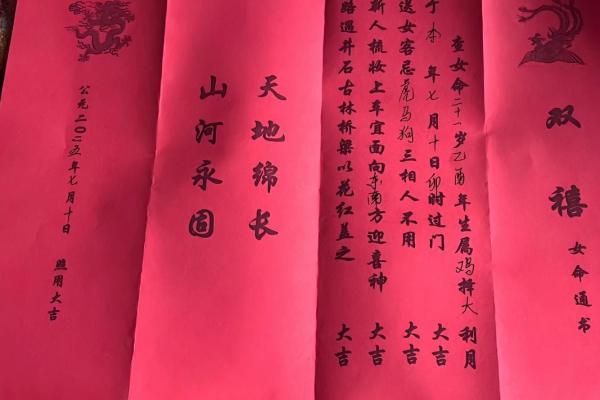 双禧
女命通书
查女命二十一岁乙酉年生属鸡择大利月
于本年七月十日卯时过门 大吉
送女客忌虎马狗三相人不用 大吉
新人梳妆上车宜面向东南方迎喜神 大吉
路遇井石古林桥梁以花红盖之 大吉
天地绵长
山河永固
公元二〇二五年七月十日 照用大吉